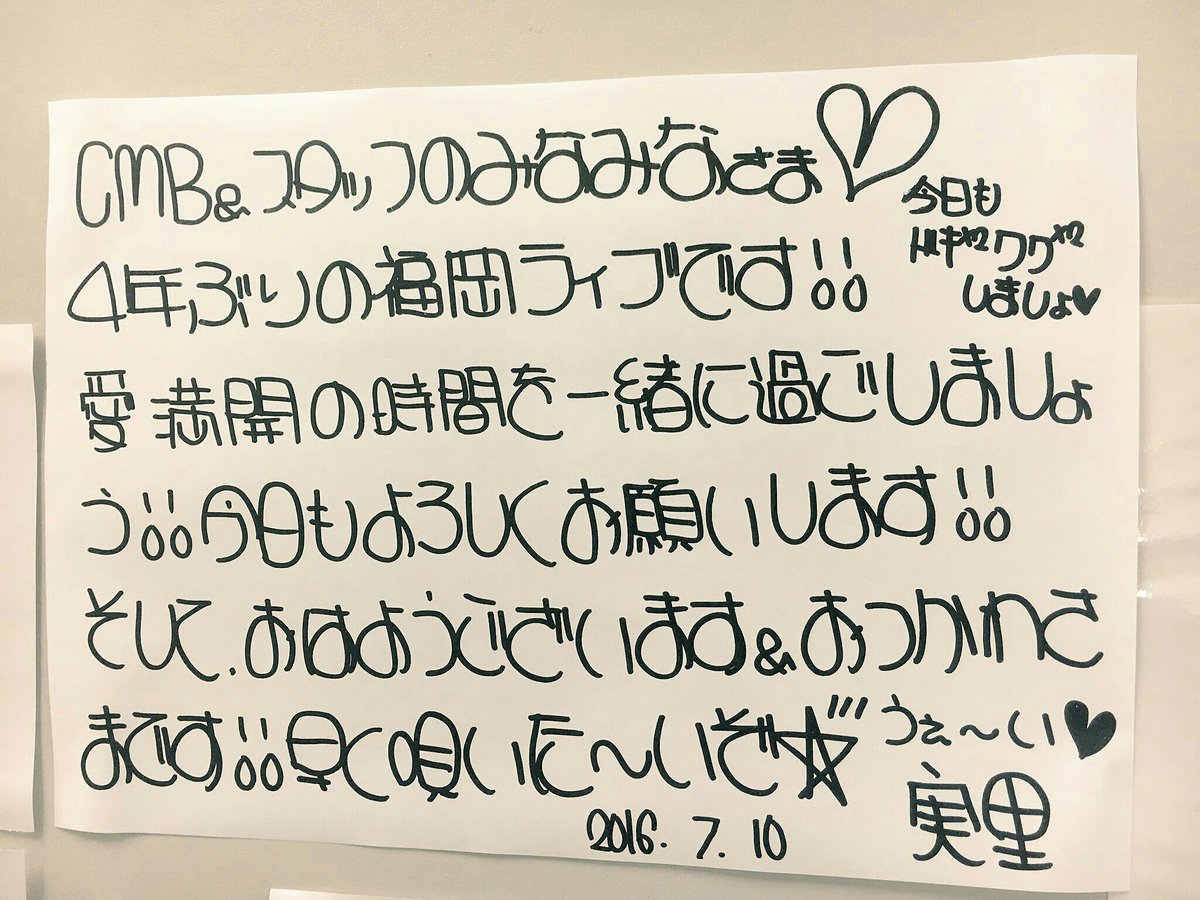 CMB&スタッフのみなみなさま♡
今日も
ドキ² ワク²
しましょ♥
4年ぶりの福岡ライブです!!
愛満開の時間を一緒に過ごしましょ
う!!今日もよろしくお願いします!!
そして、おはようございます&おつかれさ
まです!!早く唄いた〜いぞ☆
うぇ〜い♥
実里
2016. 7. 10